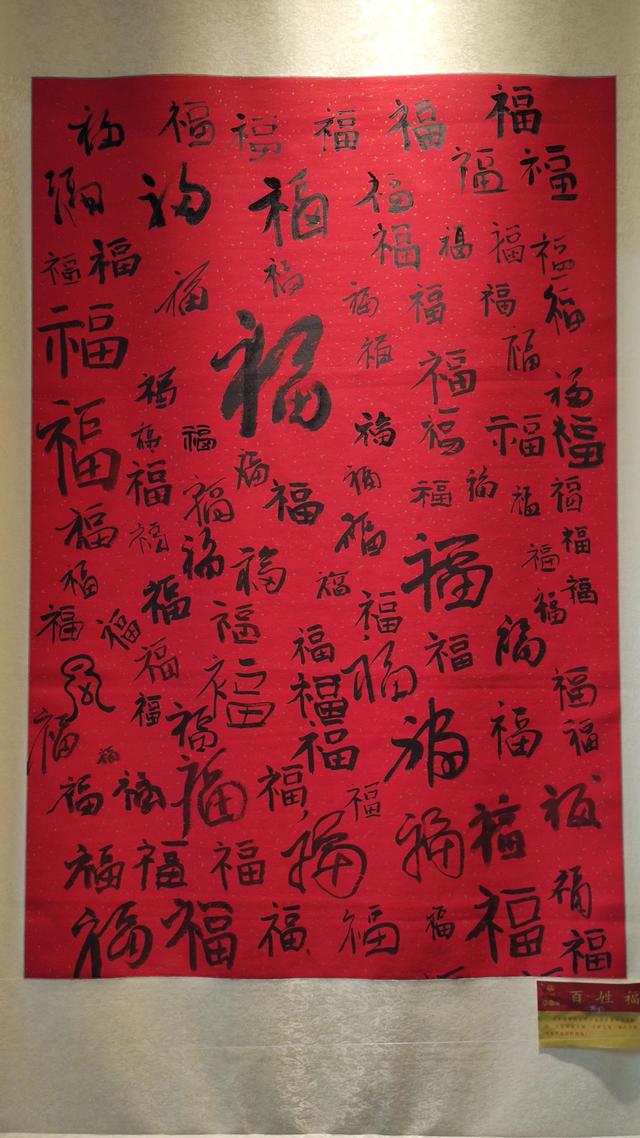 福 福 福 福 福 福
福 福 福 福 福 福
福 福 福 福 福 福
福 福 福 福 福 福
福 福 福 福 福
福 福 福 福 福 福 福 福 福
福 福 福 福 福 福 福 福 福
福 福 福 福 福 福 福 福
福 福 福 福 福 福 福 福 福
福 福 福 福 福 福
福 福 福 福 福 福 福 福 福 福
福 福 福 福 福 福 福
福 福 福 福 福 福
福 福 福 福 福 福 福
百姓福